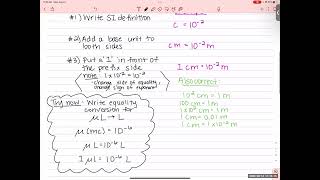 #1) Write SI definition
c = 10⁻²
#2) Add a base unit to
both sides
cm = 10⁻² m
#3) Put a '1' in front of
the prefix side
1 cm = 10⁻² m
note: 1 × 10⁻² = 10⁻²
- change side of equality,
change sign of exponent
Also correct:
10² cm = 1 m
100 cm = 1 m
1×10² cm = 1 m
1 cm = 0.01 m
1 cm = 1×10⁻² m
Try now: Write equality
conversion for
μL → L
μ (mc) = 10⁻⁶
μL = 10⁻⁶ L
1 μL = 10⁻⁶ L